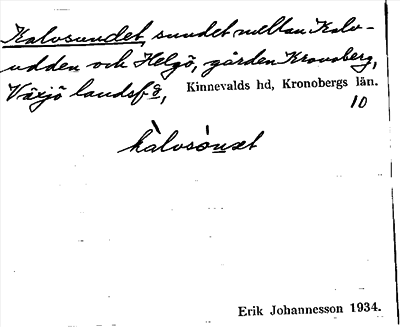 Kalvsundet, sundet mellan Kalv-
udden och Helgö, gården Kronoberg,
Växjö landsf-g, Kinnevalds hd, Kronobergs län.
10
Erik Johannesson 1934.